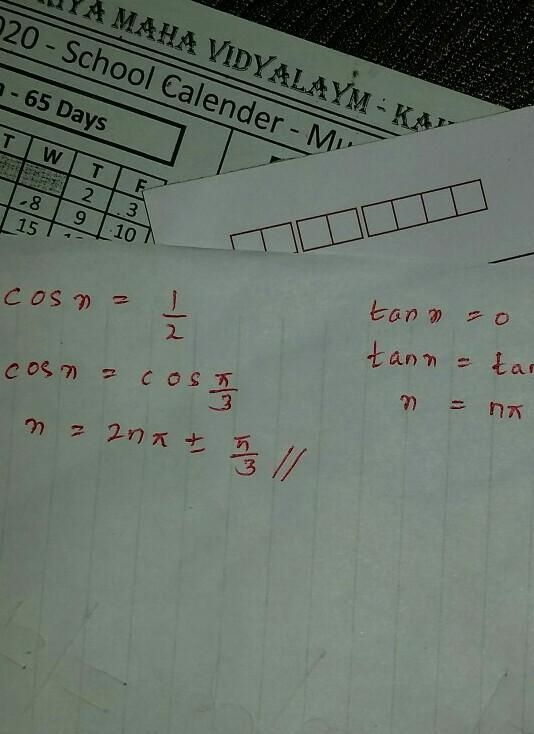 RIYA MAHA VIDYALAYM - KAH
020 - School Calender - Mu
- 65 Days
T W T F
2 3
8 9 10
15
cos x = 1/2
cos x = cos π/3
x = 2nπ ± π/3 //
tan x = 0
tan x = tan
x = nπ